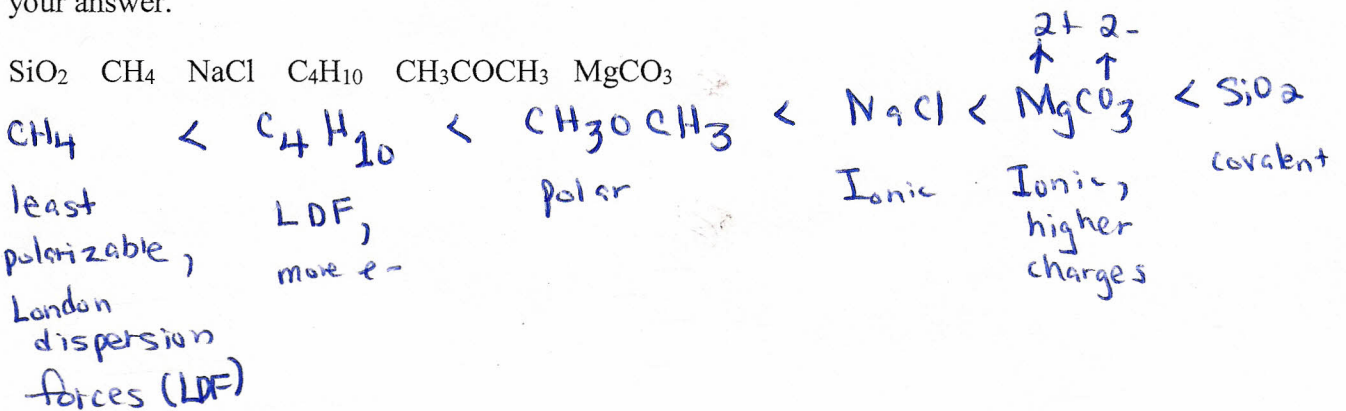 your answer.
SiO2 CH4 NaCl C4H10 CH3COCH3 MgCO3
2+ 2-
↑ ↑
CH4 < C4H10 < CH3OCH3 < NaCl < MgCO3 < SiO2
least polarizable, London dispersion forces (LDF)
LDF, more e-
polar
Ionic
Ionic, higher charges
covalent